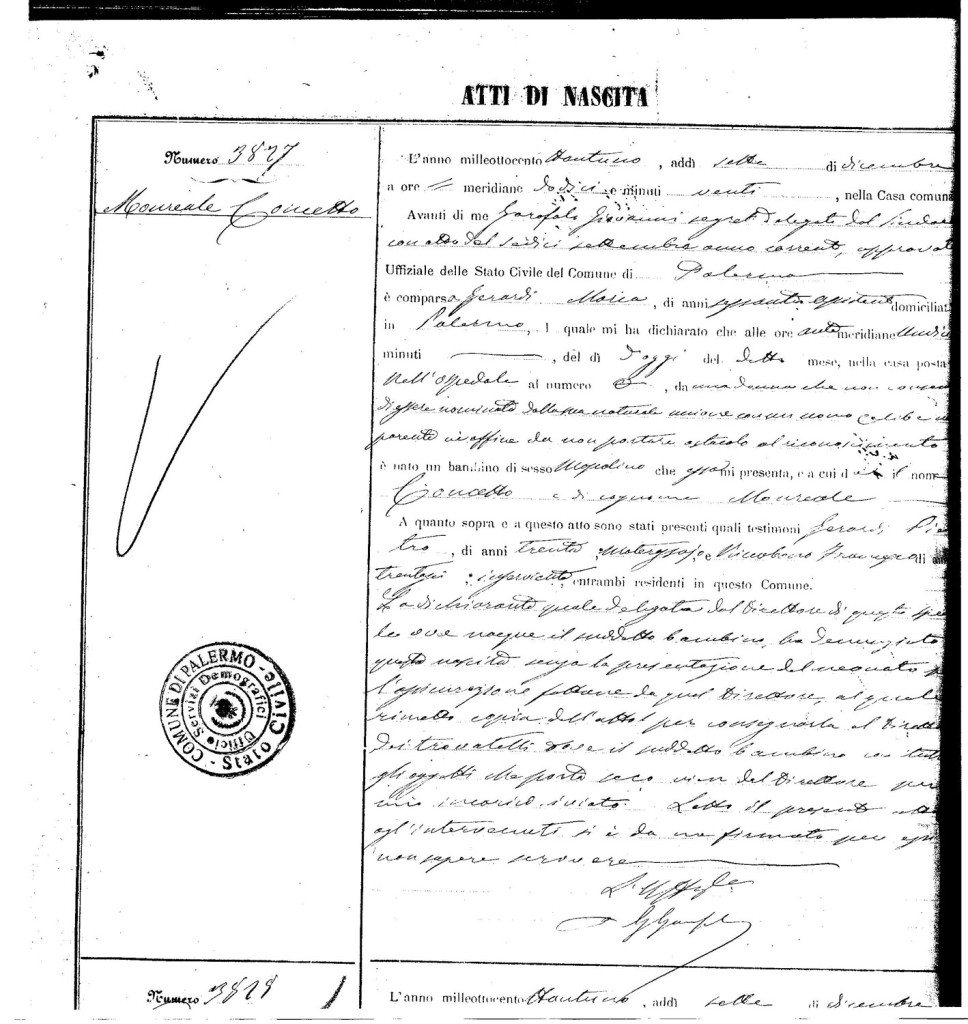 ATTI DI NASCITA
Numero 3827
Monreale Concetto
L'anno milleottocento ottantuno, addì sette di dicembre
a ore meridiane dodici e minuti venti, nella Casa comuna
Avanti di me Garofalo Giovanni segret delegato dal Sindaco
con atto del sedici settembre anno corrent, approvat
Uffiziale dello Stato Civile del Comune di Palermo
è comparsa Gerardi Maria, di anni domiciliat
in Palermo, l quale mi ha dichiarato che alle ore antimeridiane undici
minuti , del dì d'oggi del detto mese, nella casa posta
nell'ospedale al numero , da una donna che non consen
di essere nominata dalla sua naturale unione con un uomo celibe n
parente nè affine da non portare ostacolo al riconoscimento
è nato un bambino di sesso mascolino che essa mi presenta, e a cui dà il nome
Concetto e di cognome Monreale
A quanto sopra e a questo atto sono stati presenti quali testimoni Gerardi Pie
tro, di anni trenta, e Francesco di an
trentasei, entrambi residenti in questo Comune.
La dichiarante quale delegata dal Direttore di questo speda
le ove nacque il suddetto bambino, ha denunziato
questa nascita senza la presentazione del neonato p
l'assicurazione fattane da quel Direttore, al quale
rimetto copia dell'atto per consegnarla al Dirett
dei trovatelli dove il suddetto bambino con tutt
gli oggetti che portò seco vien dal Direttore per
mio incarico inviato. Letto il presente atto
agl'intervenuti si è da me firmato per essi
non sapere scrivere
COMUNE DI PALERMO - Stato Civile -
Servizi Demografici Ufficio
Numero 3828
L'anno milleottocento ottantuno, addì sette di dicembre